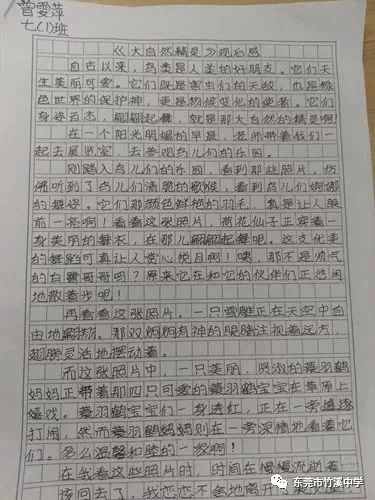 曾雯萍
七(1)班
《大自然精灵》观后感
自古以来，鸟类是人类的好朋友。它们天
生美丽可爱。它们既是害虫们的天敌，也是绿
色世界的保护神，更是物候变化的使者。它们
身姿百态，翩翩起舞，就是那大自然的精灵啊！
在一个阳光明媚的早晨，老师带着我们一
起去展览室，去参观鸟儿们的乐园。
刚踏入鸟儿们的乐园，看到那些照片，仿
佛听到了鸟儿们清脆的歌喉，看到鸟儿们婀娜
的舞姿。它们那颜色鲜艳的羽毛，真是让人眼
前一亮啊！看看这张照片，荷花仙子正穿着一
身美丽的舞衣，在那儿翩翩起舞吧。这支优美
的舞蹈可真让人赏心悦目啊！噢，那不是帅气
的白鹭哥哥吗？原来它在和它的伙伴们正悠闲
地散着步呢！
再看看这张照片。一只雪雕正在天空中自
由地翱翔。那双炯炯有神的眼睛注视着远方，
翅膀灵活地摆动着。
而这张照片中，一只美丽、贤淑的蓑羽鹤
妈妈正带着那四只可爱的蓑羽鹤宝宝在草原上
嬉戏。蓑羽鹤宝宝们一身透红，正在一旁追逐
打闹，然而蓑羽鹤妈妈则在一旁深情地看着它
们。多么温馨和睦的一家啊！
在我看这些照片时，时间在慢慢流逝着
该回去了，我恋恋不舍地离开了
东莞市竹溪中学